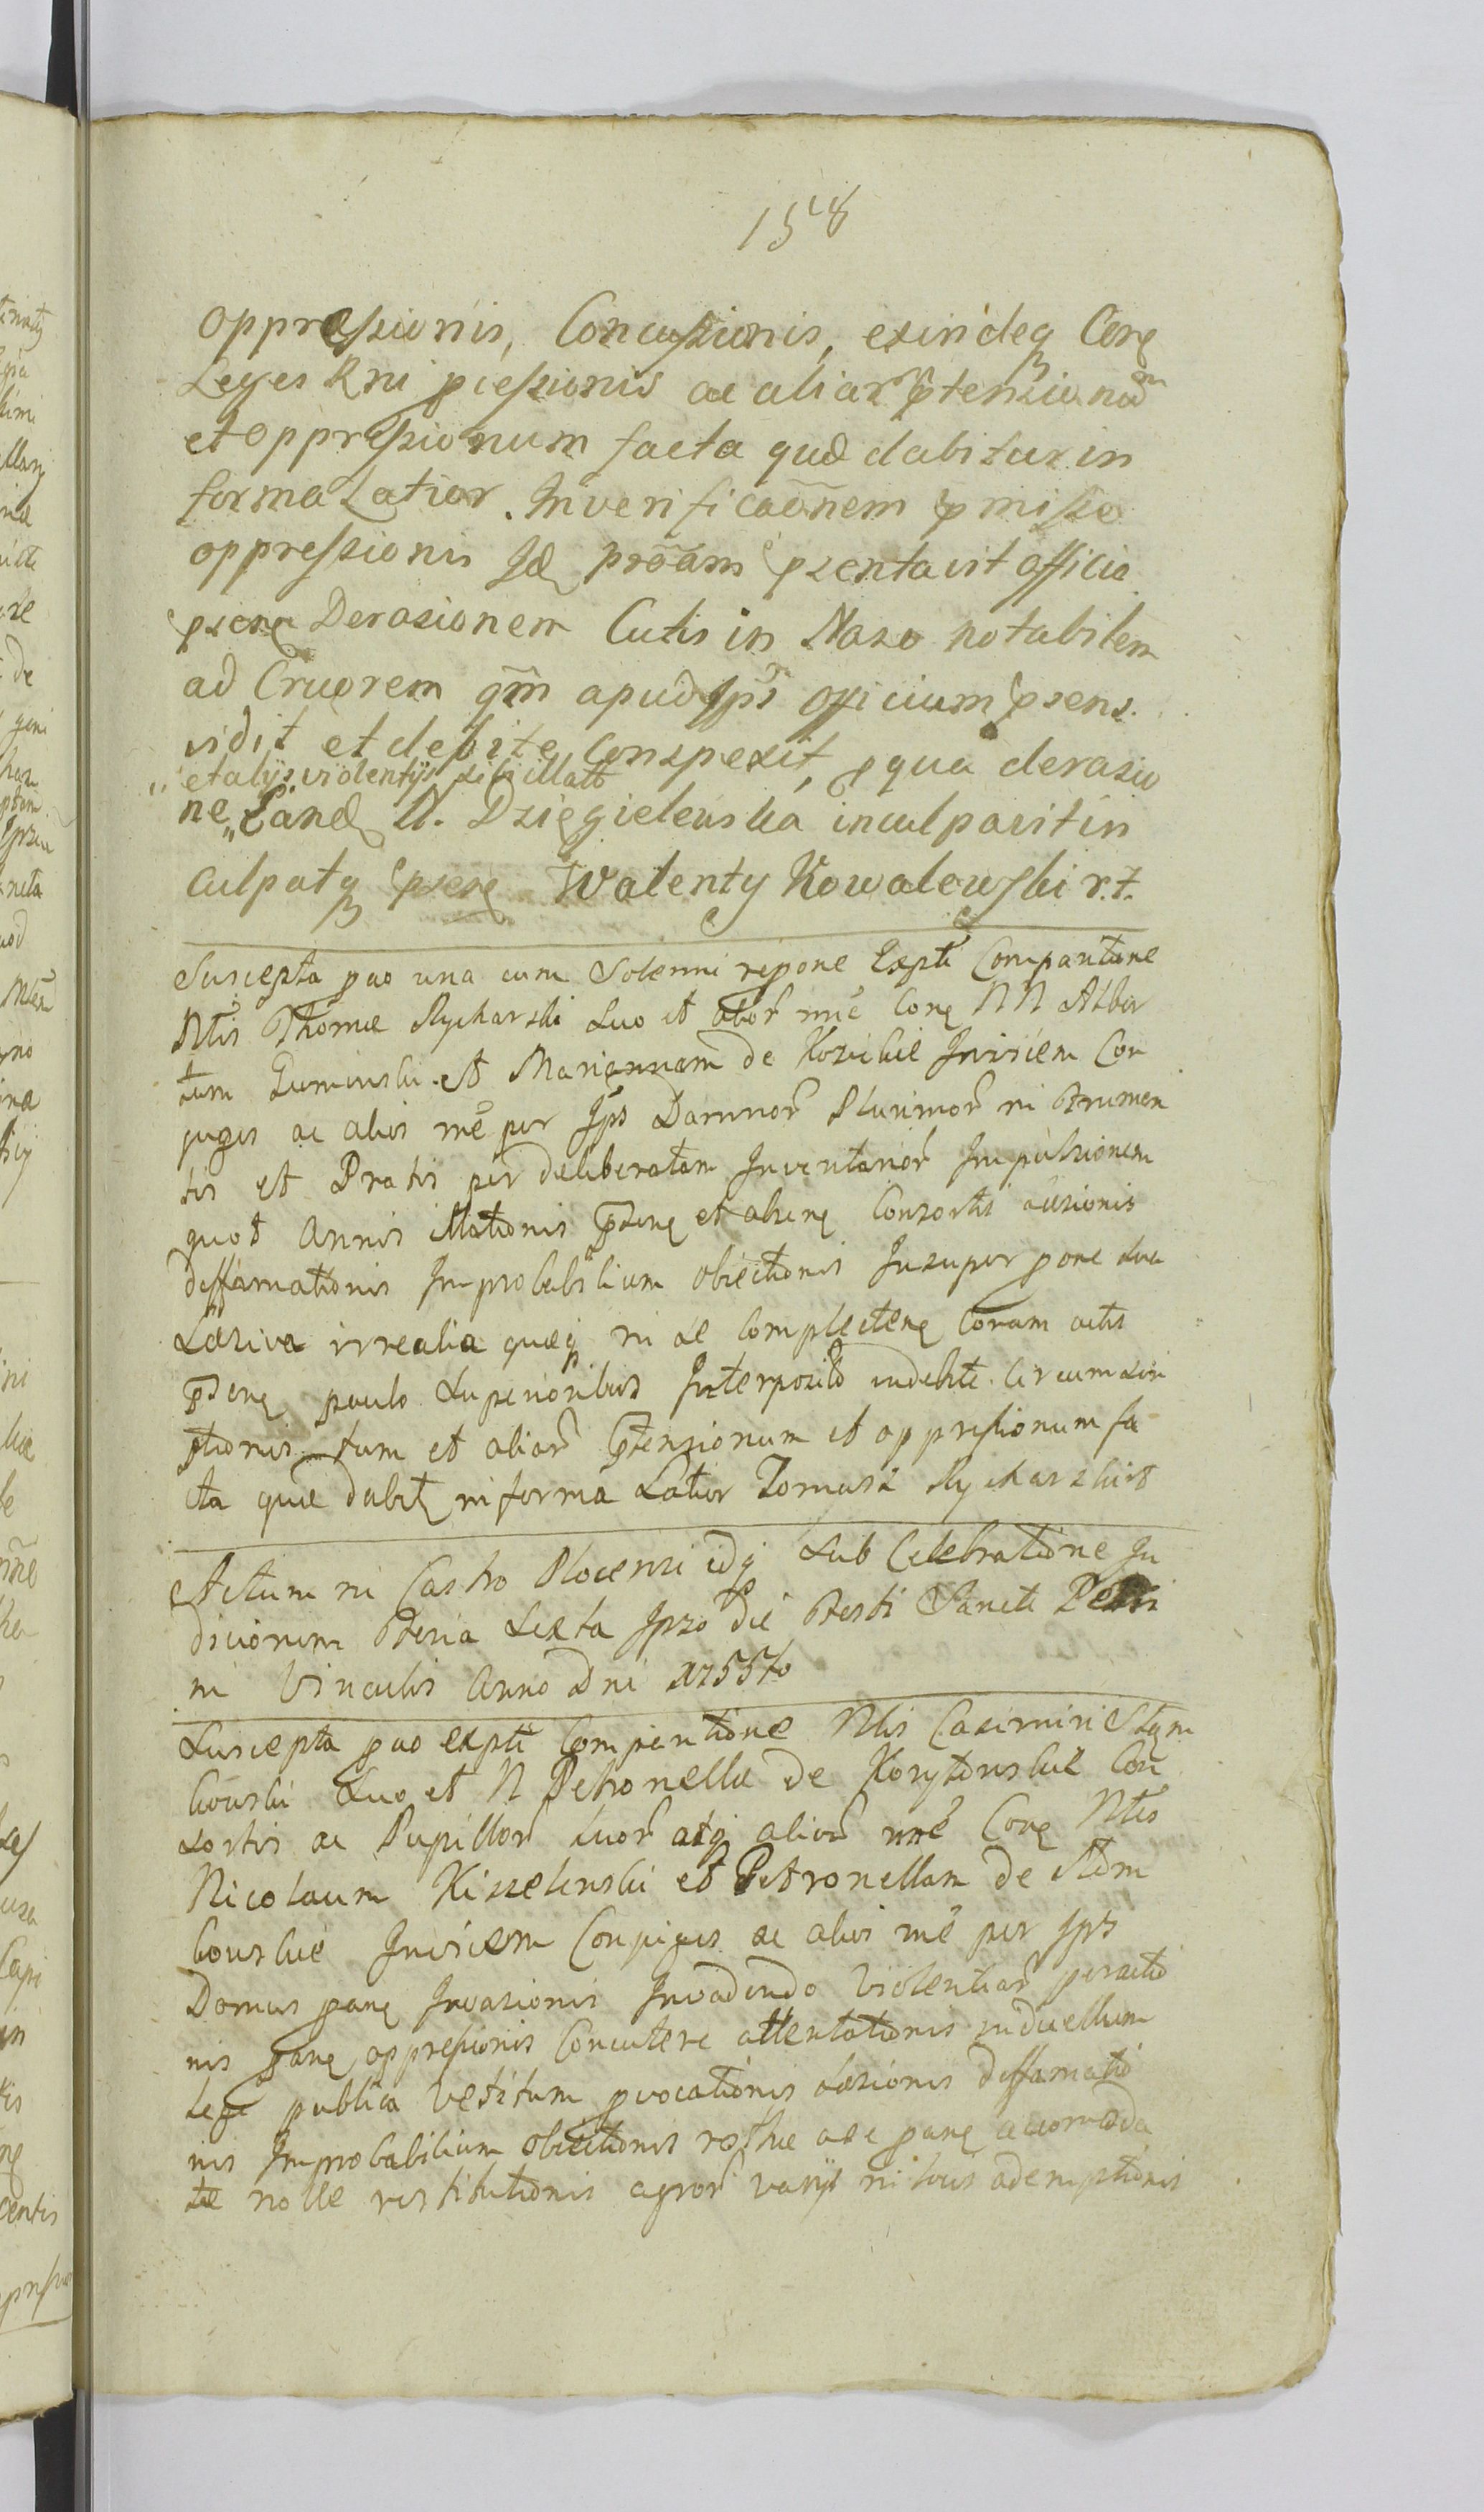 158
oppræssionis, Concussionis, exindeq Cone
Leges Rni pressionis ac aliar ptensionũ
et oppressionum facta quæ dabitur in
forma Latior. In verificaõnem pmisse
oppressionis Id prõans psentavit officio
psene Derasionem Cutis in Naso notabilem
ad Cruorem qm apud Ips officium psens
vidit et debite conspexit, p qua derasio
"et alys violentys sibi illatis
ne" Eand N. Dziegielewska inculpavit in
culpatq psene Walenty Kowalewski r.t.
Suscepta pao una cum Solenni repone Expti Comparitione
Ntis Thomæ Rycharski Suo et alior nne Cone NN Alber
tum Guminski et Mariannam de Kozickie Invicem Con
juges ac alios mé per Ips Damnor Plurimor in Frumen
tis et Pratis per deliberatam Inventarior Impulsionem
quot Annis illationis psene et absene Consortis læsionis
diffamationis Improbabilium obiectionis Insuper pone sua
Læsiva irrealia quæq in se complectene Coram actis
psene paulo superioribus Interposita indebite circumscri
ptionis tum et aliar ptensionum et oppressionum fa
cta quæ dabit in forma Latior Tomasz Rycharski r t
Actum in Castro Plocensi idq sub Celebratione Ju
diciorum Feria Sexta Ipso die Festi Sancti Petri
in Vinculis Anno Dni 1755to
Suscepta pao expti Comparitione Ntis Casimiri Stem
kowski Suo et N Petronellæ de Korytowskie Con
sortis ac Pupillor suor atq alior nne Cone Ntes
Nicolaum Kisselewski et Petronellam de Stem
kowskie Invicem Conjuges ac alios mé per Ips
Domus pane Invasionis Invadendo Violentiar peractio
nis pane oppressionis Concutere attentationis in duellum
Lege publica Vetitum pvocationis læsionis diffamatio
nis Improbabilium obiectionis pane accomoda
tæ nolle restitutionis agror varys in locis ademptionis